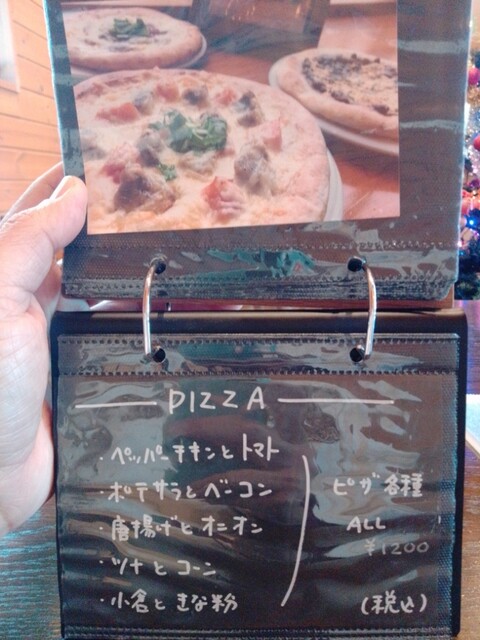 PIZZA
・ペッパーチキンとトマト
・ポテサラとベーコン
・唐揚げとオニオン
・ツナとコーン
・小倉ときな粉
ピザ各種
ALL
¥1200
(税込)